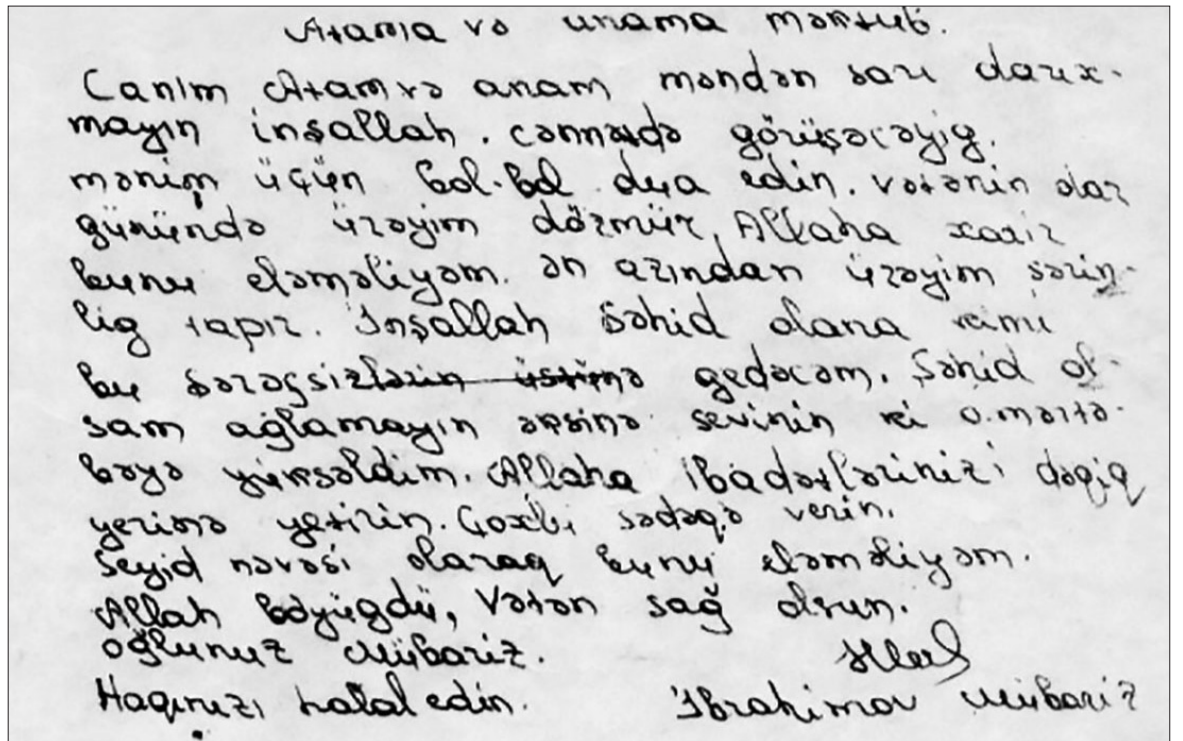 Atama və anama məktub.
Canım Atam və anam məndən sarı darıx-
mayın inşallah. cənnətdə görüşəcəyig.
mənim üçün bol-bol dua edin. vətənin dar
günündə ürəyim dözmür, Allaha xatir
bunu eləməliyəm. ən azından ürəyim sərin-
lig tapır. İnşallah Şəhid olana kimi
bu şərəfsizlərin üstünə gedəcəm. Şəhid ol-
sam ağlamayın əksinə sevinin ki o mərtə-
bəyə yüksəldim. Allaha ibadətlərinizi dəqiq
yerinə yetirin. Çoxlu sədəqə verin.
Seyid nəvəsi olaraq bunu eləməliyəm.
Allah böyügdü, Vətən sağ olsun.
oğlunuz Mübariz.
Haqınızı halal edin. İbrahimov Mübariz